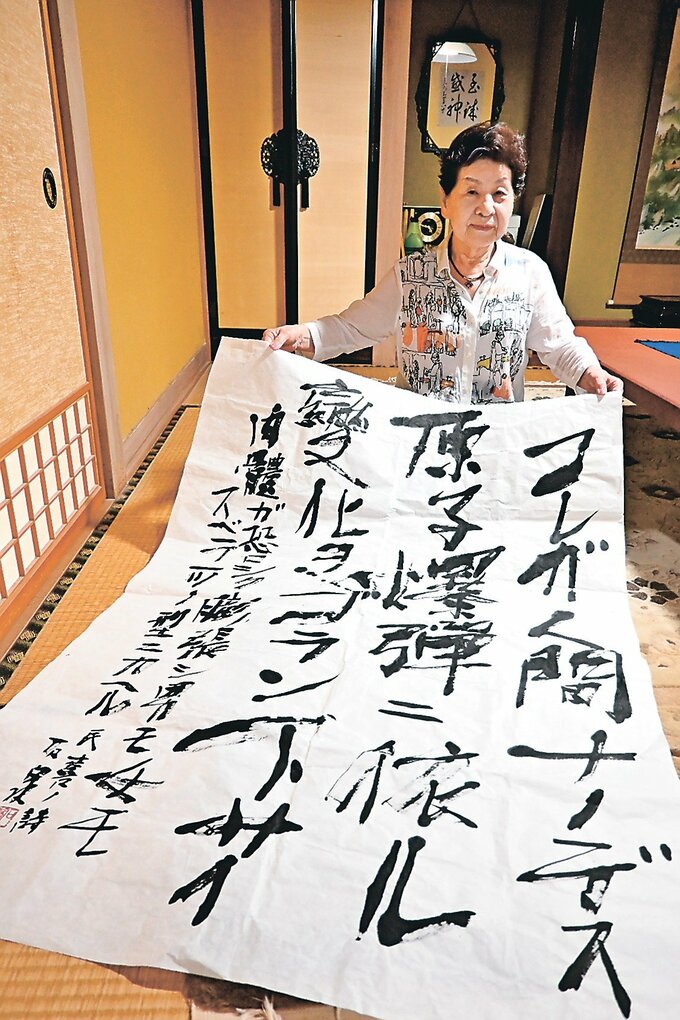 至誠
感神
コレガ人間ナノデス
原子爆弾ニ依ル
變化ヲゴラン下サイ
肉體ガ恐ロシク膨張シ男モ女モ
スベテ一ツノ型ニカヘル
民喜ノ詩